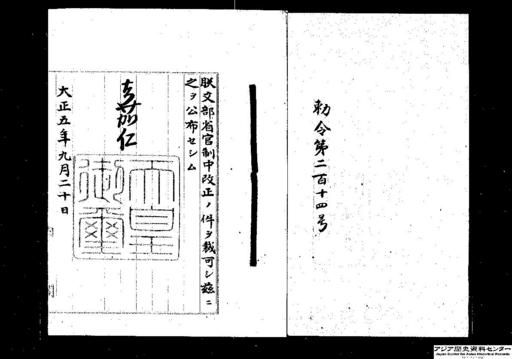 勅令第二百十四号
朕文部省官制中改正ノ件ヲ裁可シ茲ニ
之ヲ公布セシム
嘉仁
天皇御璽
大正五年九月二十日
アジア歴史資料センター
Japan Center for Asian Historical Records